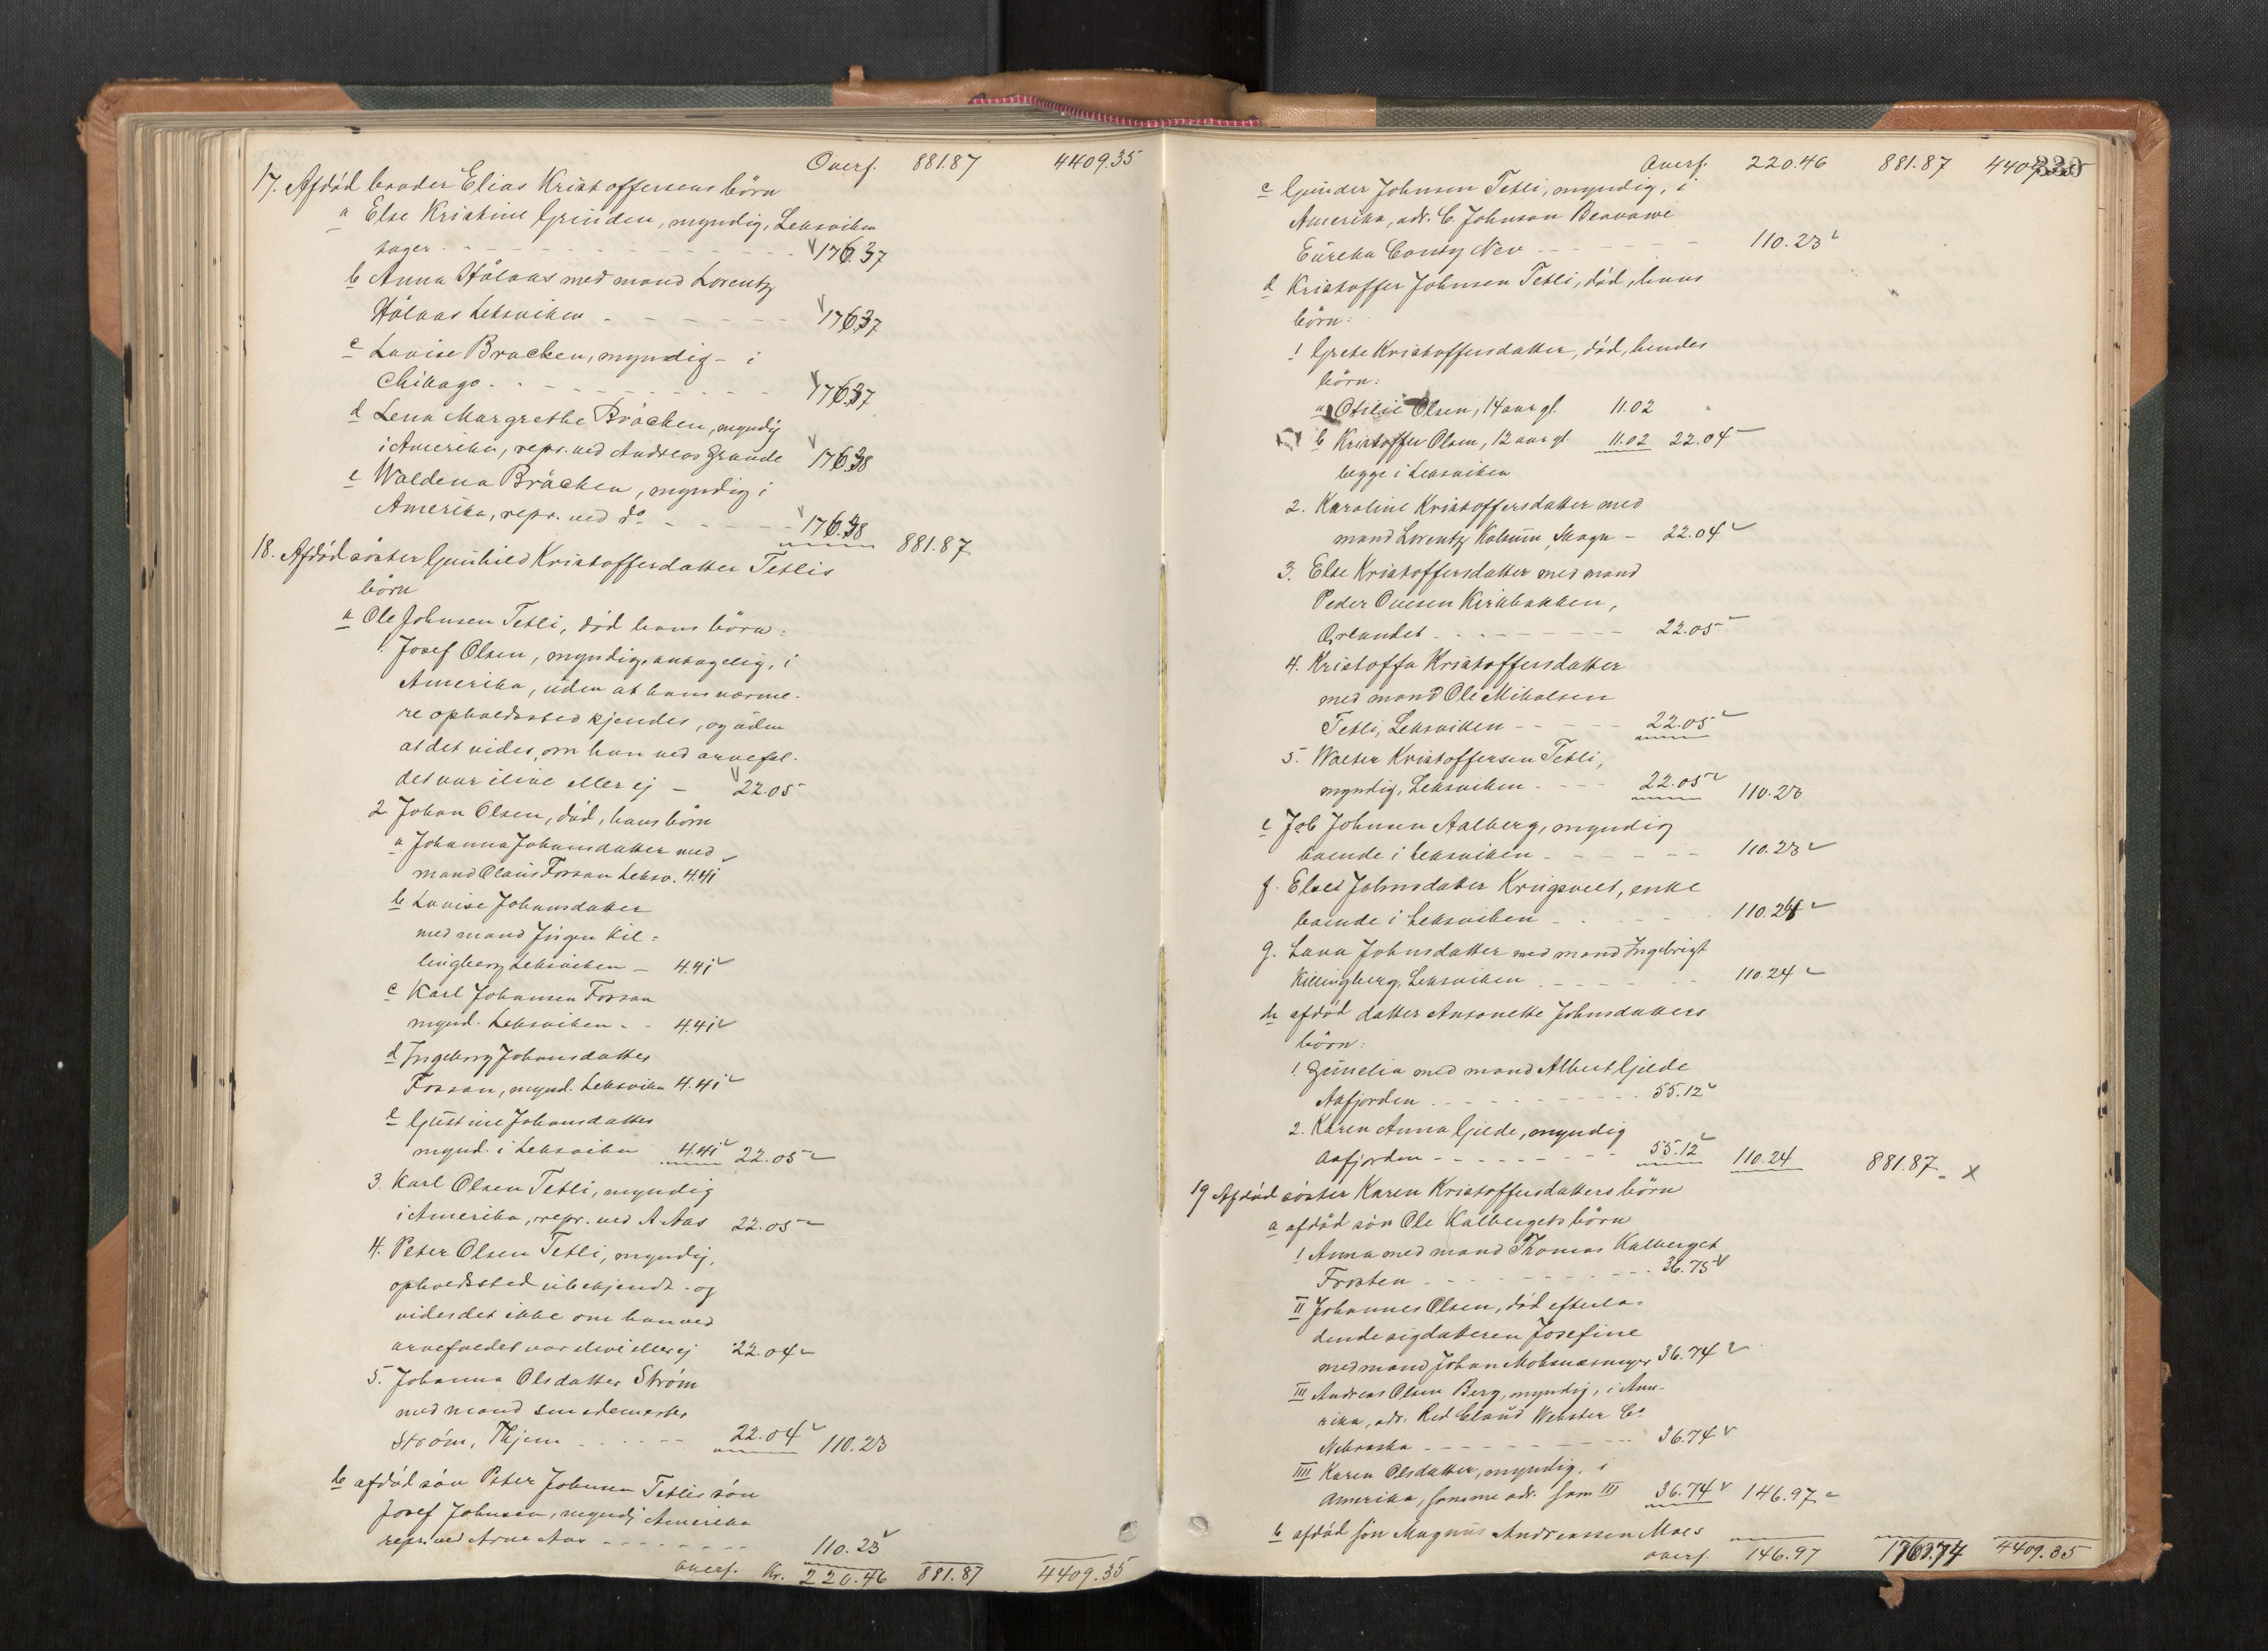 Overf. 881.87 4409.35
17. Afdød broder Elias Kristoffersens börn
a Else Kristine Grinden, myndig, Leksviken
tager 176.37
b Anna Hölaas med mand Lorentz
Hölaas Leksviken 176.37
c Lovise Bracken, myndig - i
Chikago 176.37
d Lena Margrethe Bracken, myndig
i Amerika, repr. ved Andreas Grande 176.38
e Waldena Bracken, myndig i
Amerika, repr. ved do 176.38 881.87
18. Afdöd söster Gunhild Kristoffersdatter Tetlis
börn
a Ole Johnsen Tetli, död hans börn:
1. Josef Olsen, myndig, antagelig, i
Amerika, uden at hans nærme-
re opholdssted kjendes, og uden
at det vides, om han ved arvefal-
det var ilive eller ej - 22.05
2. Johan Olsen, död, hans börn
a. Johanna Johansdatter med
mand Olaus Forran Leksv. 4.41
b Lovise Johansdatter
med mand Jörgen Kil-
lingberg Leksviken - 4.41
c Karl Johansen Forran
mynd. Leksviken - 4.41
d Ingeborg Johansdatter
Forran, mynd. Leksviken 4.41
e Gustine Johansdatter
mynd. i Leksviken 4.41 22.05
3. Karl Olsen Tetli, myndig
i Amerika, repr. ved A. Aas 22.05
4. Peter Olsen Tetli, myndig,
opholdssted ubekjendt - og
vides det ikke om han ved
arvefaldet var ilive eller ej 22.04
5. Johanna Olsdatter Ström
med mand smedemester
Ström, Thjem 22.04 110.23
b afdöd sön Peter Johnsen Tetlis sön
Josef Johnsen, myndig Amerika
repr. ved Arne Aas 110.23
overf. Kr. 220.46 881.87 4409.35
Overf. 220.46 881.87 4409.35
339
c Gunder Johnsen Tetli, myndig, i
Amerika, adr. C. Johnson Beowawe
Eureka Conty Nev 110.23
d Kristoffer Johnsen Tetli, död, hans
börn:
1 Grete Kristoffersdatter, död, hendes
börn:
a Otilie Olsen, 14 aar gl. 11.02
b Kristoffer Olsen, 12 aar gl. 11.02 22.04
begge i Leksviken
2. Karoline Kristoffersdatter med
mand Lorentz Kolsum, Skogn - 22.04
3. Else Kristoffersdatter med mand
Peder Ovesen Kirkbakken,
Ørlandet 22.05
4. Kristoffa Kristoffersdatter
med mand Ole Mikalsen
Tetli, Leksviken - 22.05
5. Walter Kristoffersen Tetli,
myndig, Leksviken - 22.05 110.23
e Job Johnsen Aalberg, myndig
boende i Leksviken 110.23
f. Elsed Johnsdatter Krigsvelt, enke
boende i Leksviken 110.24
g. Lava Johnsdatter med mand Ingebrigt
Killingberg, Leksviken 110.24
h afdöd datter Antonette Johnsdatters
börn:
1. Gunelia med mand Albert Gjelde
Aafjorden 55.12
2. Karen Anna Gjelde, myndig
Aafjorden 55.12 110.24 881.87 x
19 Afdöd söster Karen Kristoffersdatters börn
a afdöd sön Ole Kalbergets börn
1 Anna med mand Thomas Kalberget
Frosten 36.75
II Johannes Olsen, död efterla-
dende sig datteren Josefine
med mand Johan 36.74
III Andreas Olsen Berg, myndig, i Ame-
rika, adr. Red Cloud Webster Co
Nebraska 36.74
IIII Karen Olsdatter, myndig, i
Amerika, samme adr. som III 36.74 146.97
b afdöd sön Magnus Andreassen Moes
overf. 146.97 1763.74 4409.35